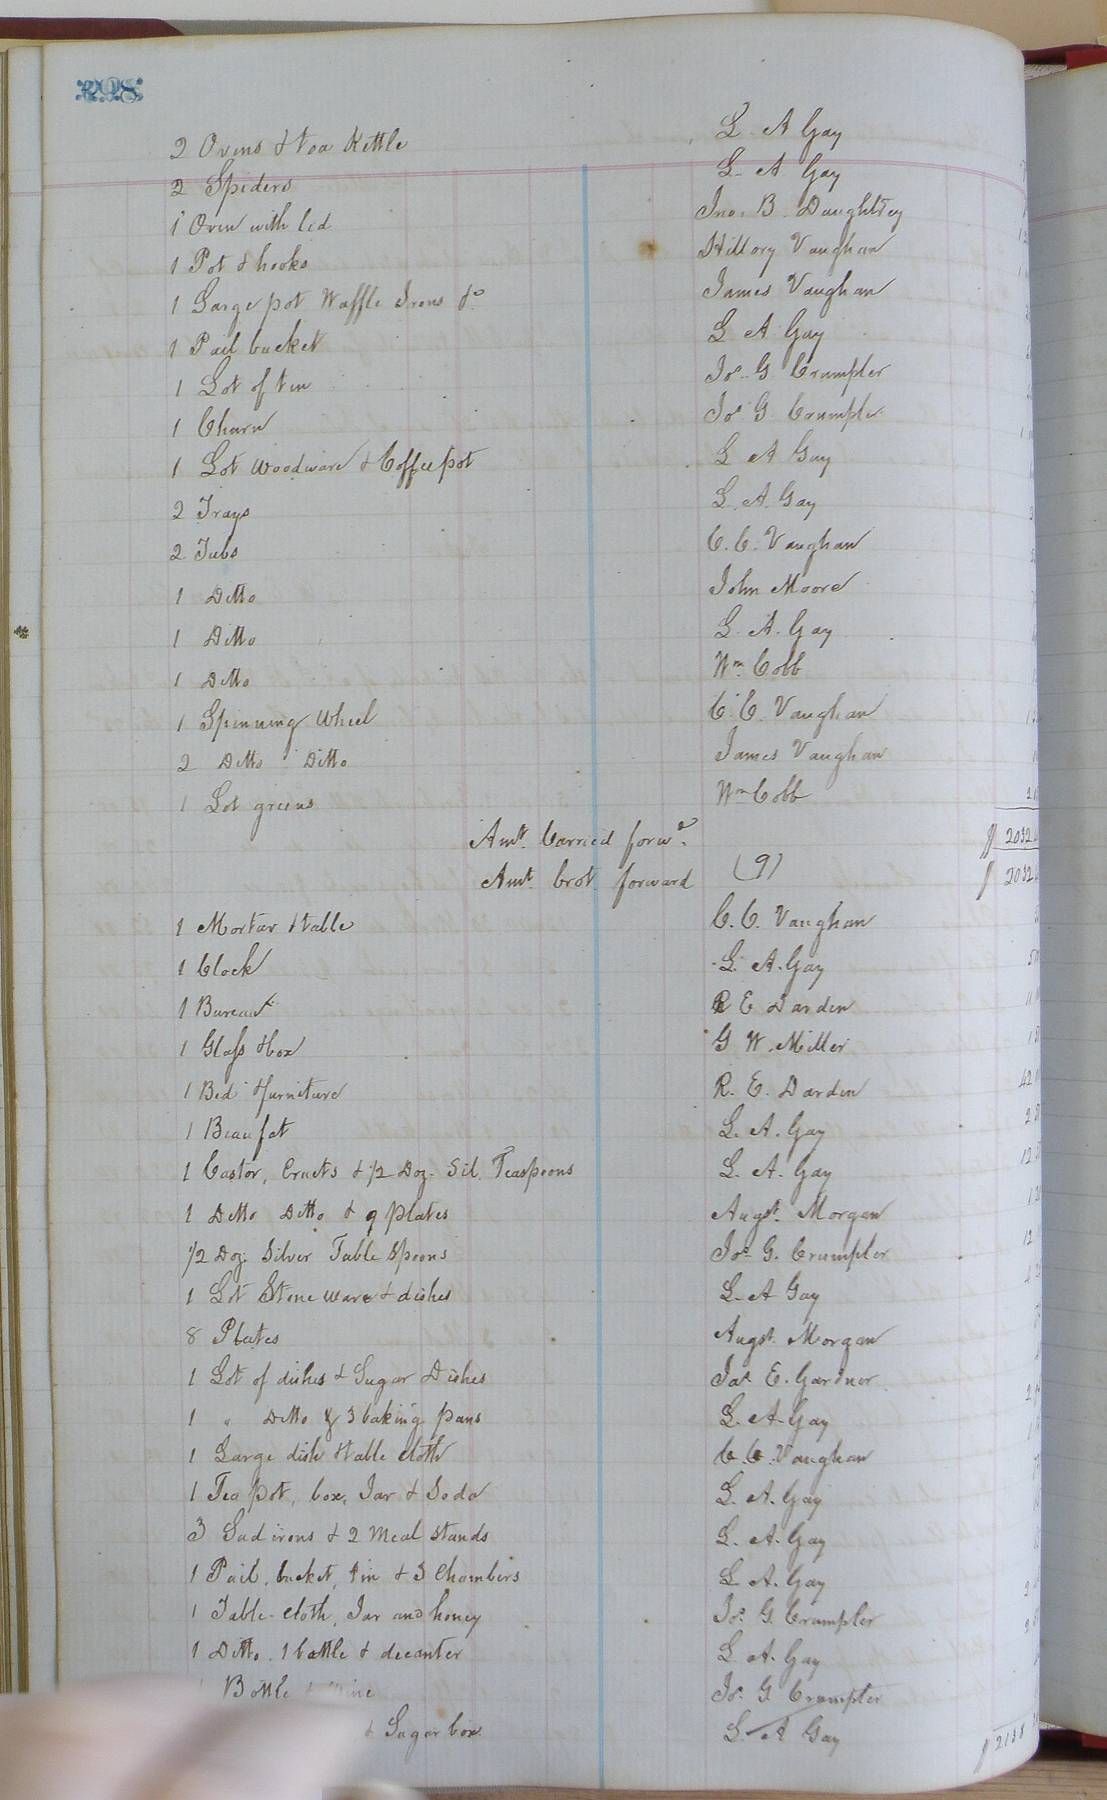 298
2 Ovens & tea Kettle L. A Gay
2 Spiders L. A. Gay
1 Oven with lid Jno. B. Daughtrey
1 Pot & hooks Hillory Vaughan
1 Large pot Waffle Irons &c James Vaughan
1 Pail bucket L A Gay
1 Lot of tin Jos. G. Crumpler
1 Churn Jos G Crumpler
1 Lot Woodware & Coffee pot L A Gay
2 Trays L. A. Gay
2 Tubs C. C. Vaughan
1 Ditto John Moore
1 Ditto L. A. Gay
1 Ditto Wm. Cobb
1 Spinning Wheel C. C. Vaughan
2 Ditto Ditto James Vaughan
1 Lot greens Wm Cobb
Amt. Carried forwd.
Amt. brot forward (9)
1 Mortar & table C. C. Vaughan
1 Clock L. A. Gay
1 Bureau R E Darden
1 Glass & box G W. Miller
1 Bed & furniture R. E. Darden
1 Beaufat L. A. Gay
1 Castor, Cruets & 1/2 Doz. Sil. Teaspoons L. A. Gay
1 Ditto Ditto & 9 plates Augst. Morgan
1/2 Doz. Silver Table Spoons Jos. G. Crumpler
1 Lot Stone ware & dishes L. A Gay
8 Plates Augst. Morgan
1 Lot of dishes & Sugar Dishes Jas. E. Gardner
1 " Ditto & 3 baking pans L. A. Gay
1 Large dish & table cloth C. C. Vaughan
1 Tea pot, box, Jar & Soda L. A. Gay
3 Sad irons & 2 Meal stands L. A. Gay
1 Pail, bucket, tin & 3 Chambers L. A. Gay
1 Table-cloth, Jar and honey Jos. G. Crumpler
1 Ditto. 1 bottle & decanter L. A. Gay
Bottle & Wine Jos. G. Crumpler
& Sugar box L. A Gay